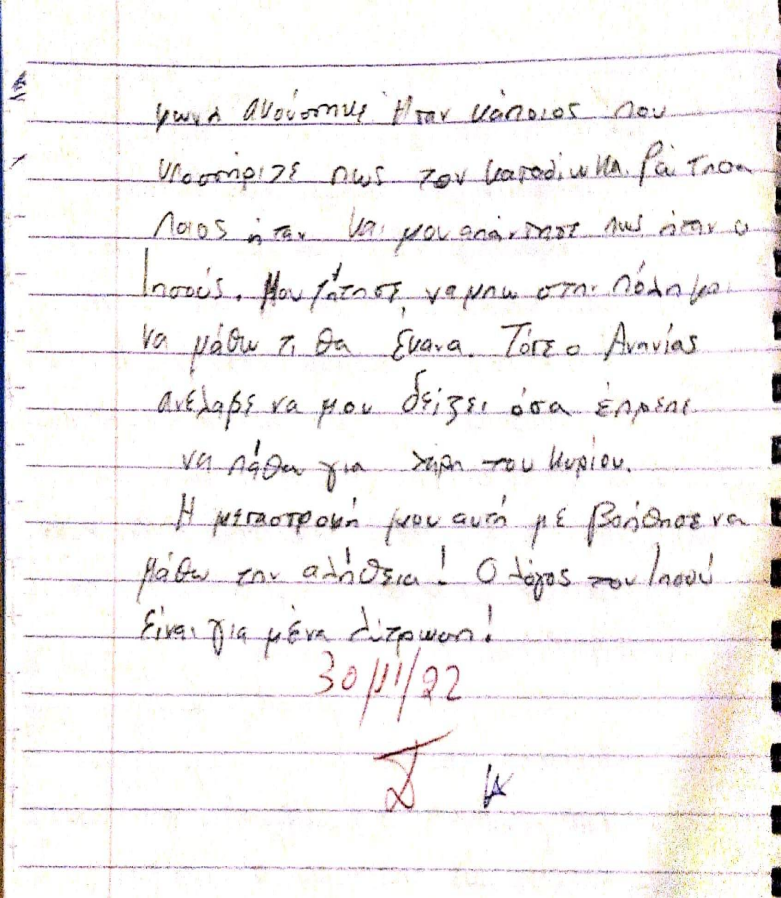 φωνή ακούστηκε Ήταν κάποιος που
υποστήριζε πως τον καταδίωκα. Ρώτησα
ποιος ήταν και μου απάντησε πως ήταν ο
Ιησούς. Μου ζήτησε να μπω στην πόλη για
να μάθω τι θα έκανα. Τότε ο Ανανίας
ανέλαβε να μου δείξει όσα έπρεπε
να πάθω για χάρη του Κυρίου.
Η μεταστροφή μου αυτή με βοήθησε να
μάθω την αλήθεια! Ο λόγος του Ιησού
είναι για μένα λύτρωση!
30/11/22